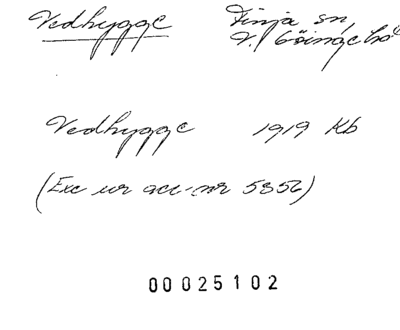 Vedhygge Finja sn,
V. Göinge hd
Vedhygge 1919 Kb
(Exc ur acc-nr 5356)
00025102